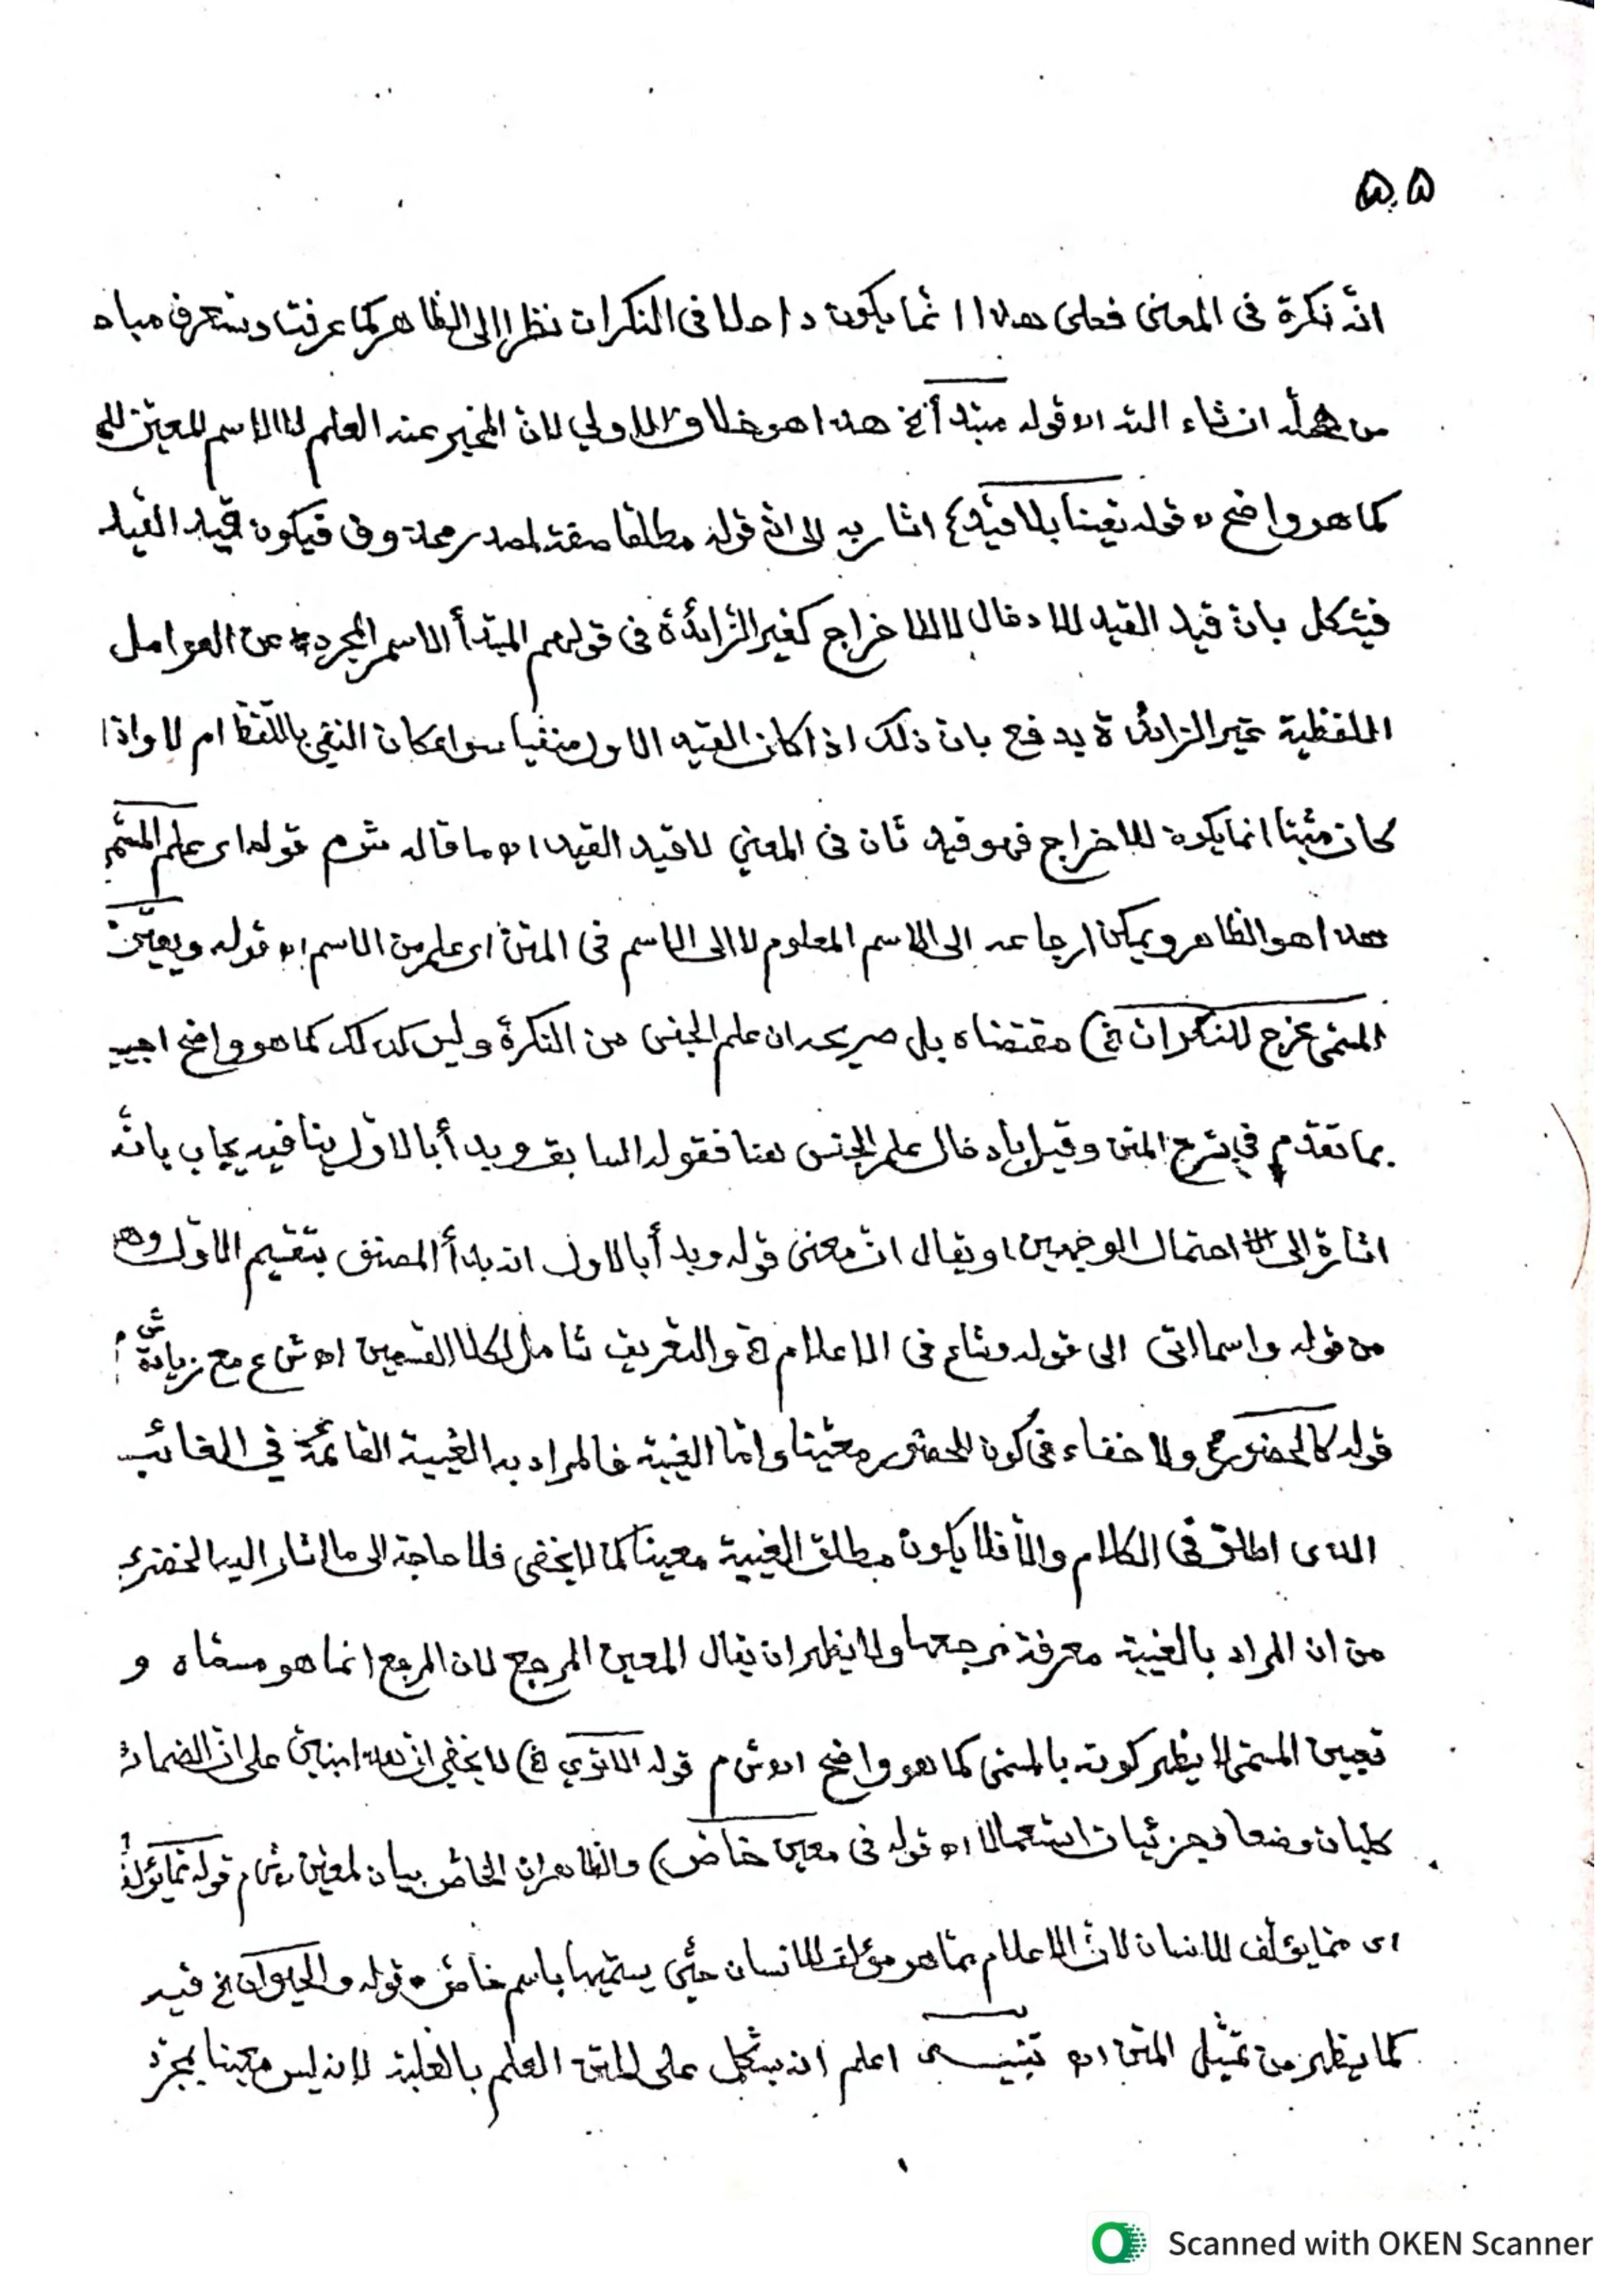 ٥٥
انّه نكرة فى المعنى فعلى هذا انّما يكون داخلا فى النكرات نظرا الى الظاهر كما عرفت وستعرف
من ان شاء الله اه قوله مبتدأ الخ هذا هو خلاف الاولي لانّ المخبر عنه العلم لا الاسم المعيّن
كما هو واضح اه قوله تعيينا بلا قيد) اشار به الى انّ قوله مطلقا صفة لمصدر محذوف فيكون قيد القيد
فيشكل بان قيد القيد للادخال لا للاخراج كغير الزائدة فى قولهم المبتدأ الاسم المجرد عن العوامل
اللفظية غير الزائدة يدفع بان ذلك اذا كان القيد الاول منفيا سواء كان النفي باللفظ ام لا واذا
كان مثبتا انما يكون للاخراج فهو قيد ثان فى المعني لا قيد القيد اه ما قاله ش م قوله اى علم المسمّى
هذا هو الظاهر ويمكن ارجاعه الى الاسم المعلوم لا الى الاسم فى المتن اى علم من الاسم اه قوله ويعيّن
المسمى مخرج للنكرات الخ) مقتضاه بل صريحه ان علم الجنس من النكرة وليس كذلك كما هو واضح اجيب
بما تقدّم في شرح المتن وقيل بادخال علم الجنس هنا فقوله السابق وبدأ بالاوّل ينافيه يجاب بانّه
اشارة الى احتمال الوجهين او يقال انّ معنى قوله وبدأ بالاول انه بدأ المصنف بتقسيم الاوّل وهو
من قوله واسما اتى الى قوله وشاع فى الاعلام الخ والتعريف شامل لكلا القسمين اه ش ع مع زيادة ش م
قوله كالحضور) ولا خفاء فى كون الحضور معيّنا وامّا الغيبة فالمراد به الغيبية القائمة في الغائب
الذى اطلق فى الكلام والّا فلا يكون مطلق الغيبية معينا كما لا يخفى فلا حاجة الى ما اشار اليه الخضرى
من ان المراد بالغيبية معرفة مرجعها ولا يظهر ان يقال المعين المرجع لان المرجع انما هو مسمّاه و
تعيين المسمّى لا يظهر كونه بالمسمى كما هو واضح اه ش م قوله الاتوي الخ) لا يخفي انّ هذا مبنيّ على انّ الضمائر
كليات وضعا وجزئيات استعمالا اه قوله فى معين خاص) والظاهر ان الخاصّ بيان لمعيّن اه ش م قوله ممّا يؤلف
اى ممّا يؤلّف للانسان لانّ الاعلام ممّا هو مؤلف للانسان حتّى يسمّيها باسم خاصّ اه قوله والحيوان الخ قيد
كما يظهر من تمثيل المتن اه تنبيه اعلم انه يشكل على المتن العلم بالغلبة لانه ليس معينا بمجرّد
Scanned with OKEN Scanner